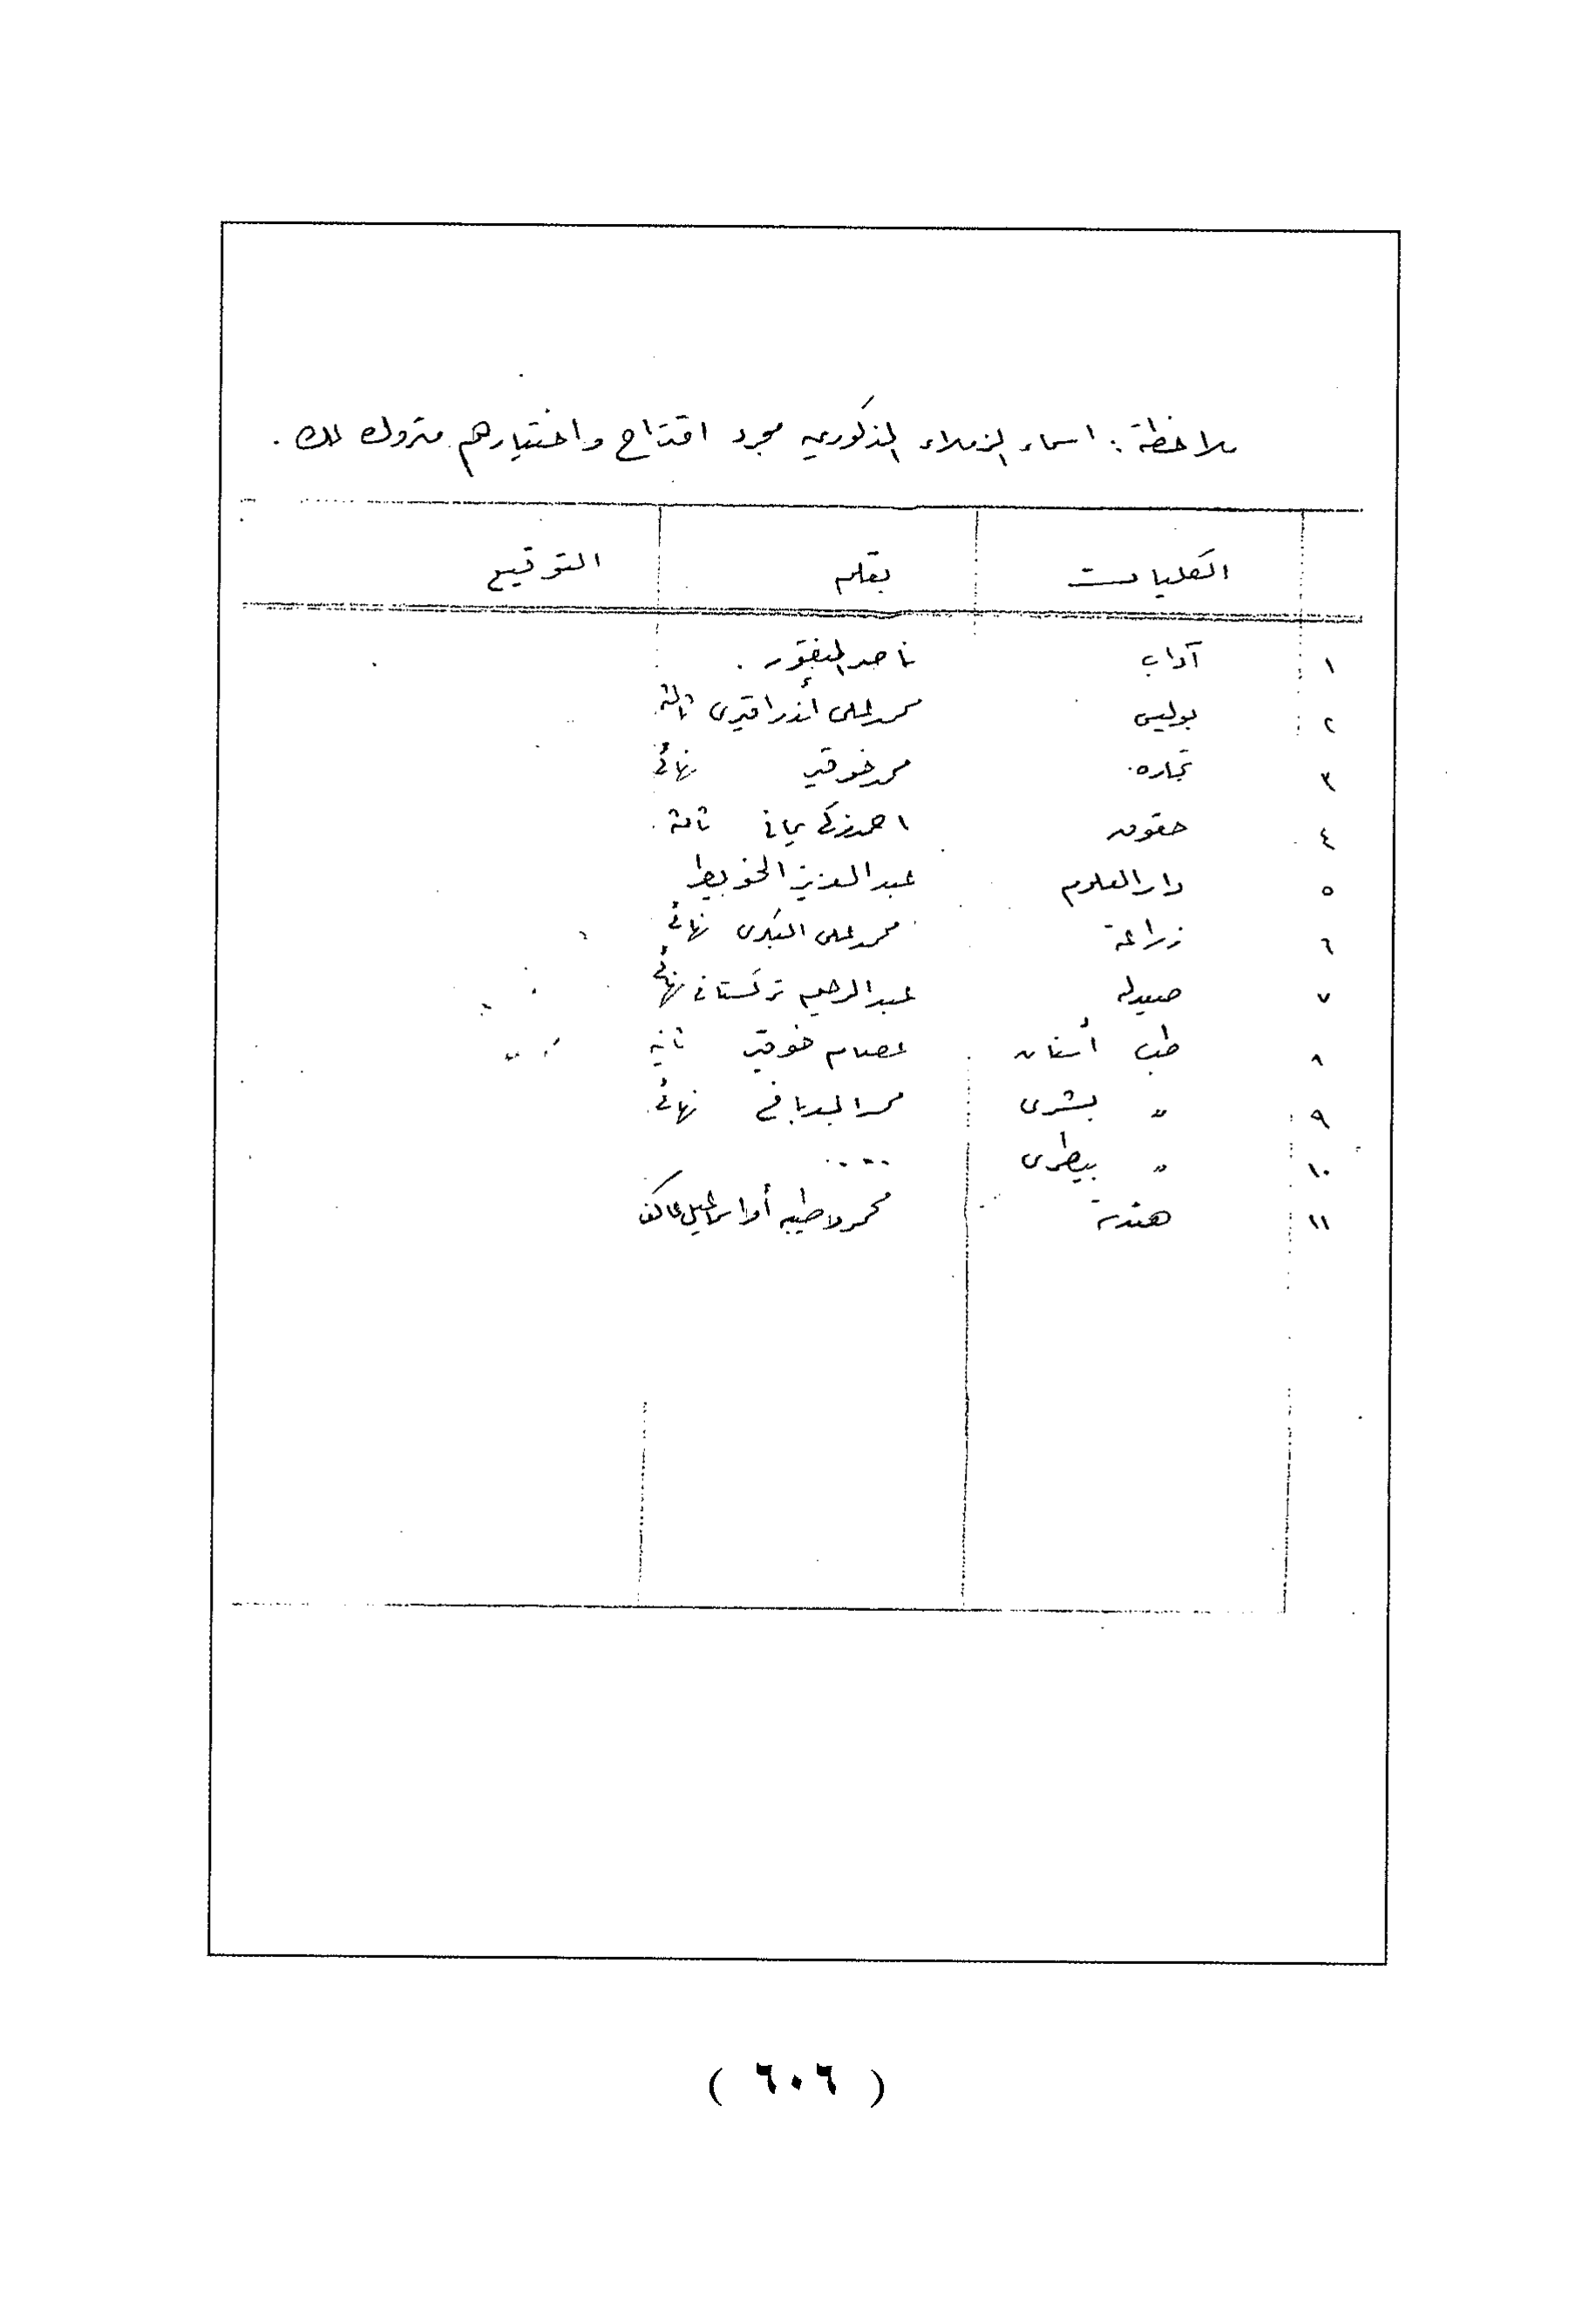 ملاحظة : اسماء الزملاء المذكورين مجرد اقتراح واختيارهم متروك لك .
الكليات بقلم التوقيع
١ آداب ناصر المنقور .
٢ بوليس محمد علي أندرقيري ثالثة
٣ تجاره محمد خوقير نهائي
٤ حقوق احمد زكي يماني ثالثة
٥ دار العلوم عبد العزيز الخويطر
٦ زراعة محمد علي البكري نهائي
٧ صيدلة عبد الرحيم تركستاني نهائي
٨ طب أسنان عصام خوقير ثانية
٩ " بشرى محمد نهائي
١٠ " بيطرى ....
١١ هندسة محمود طيبه أو اسماعيل عاكف
( ٦٠٦ )